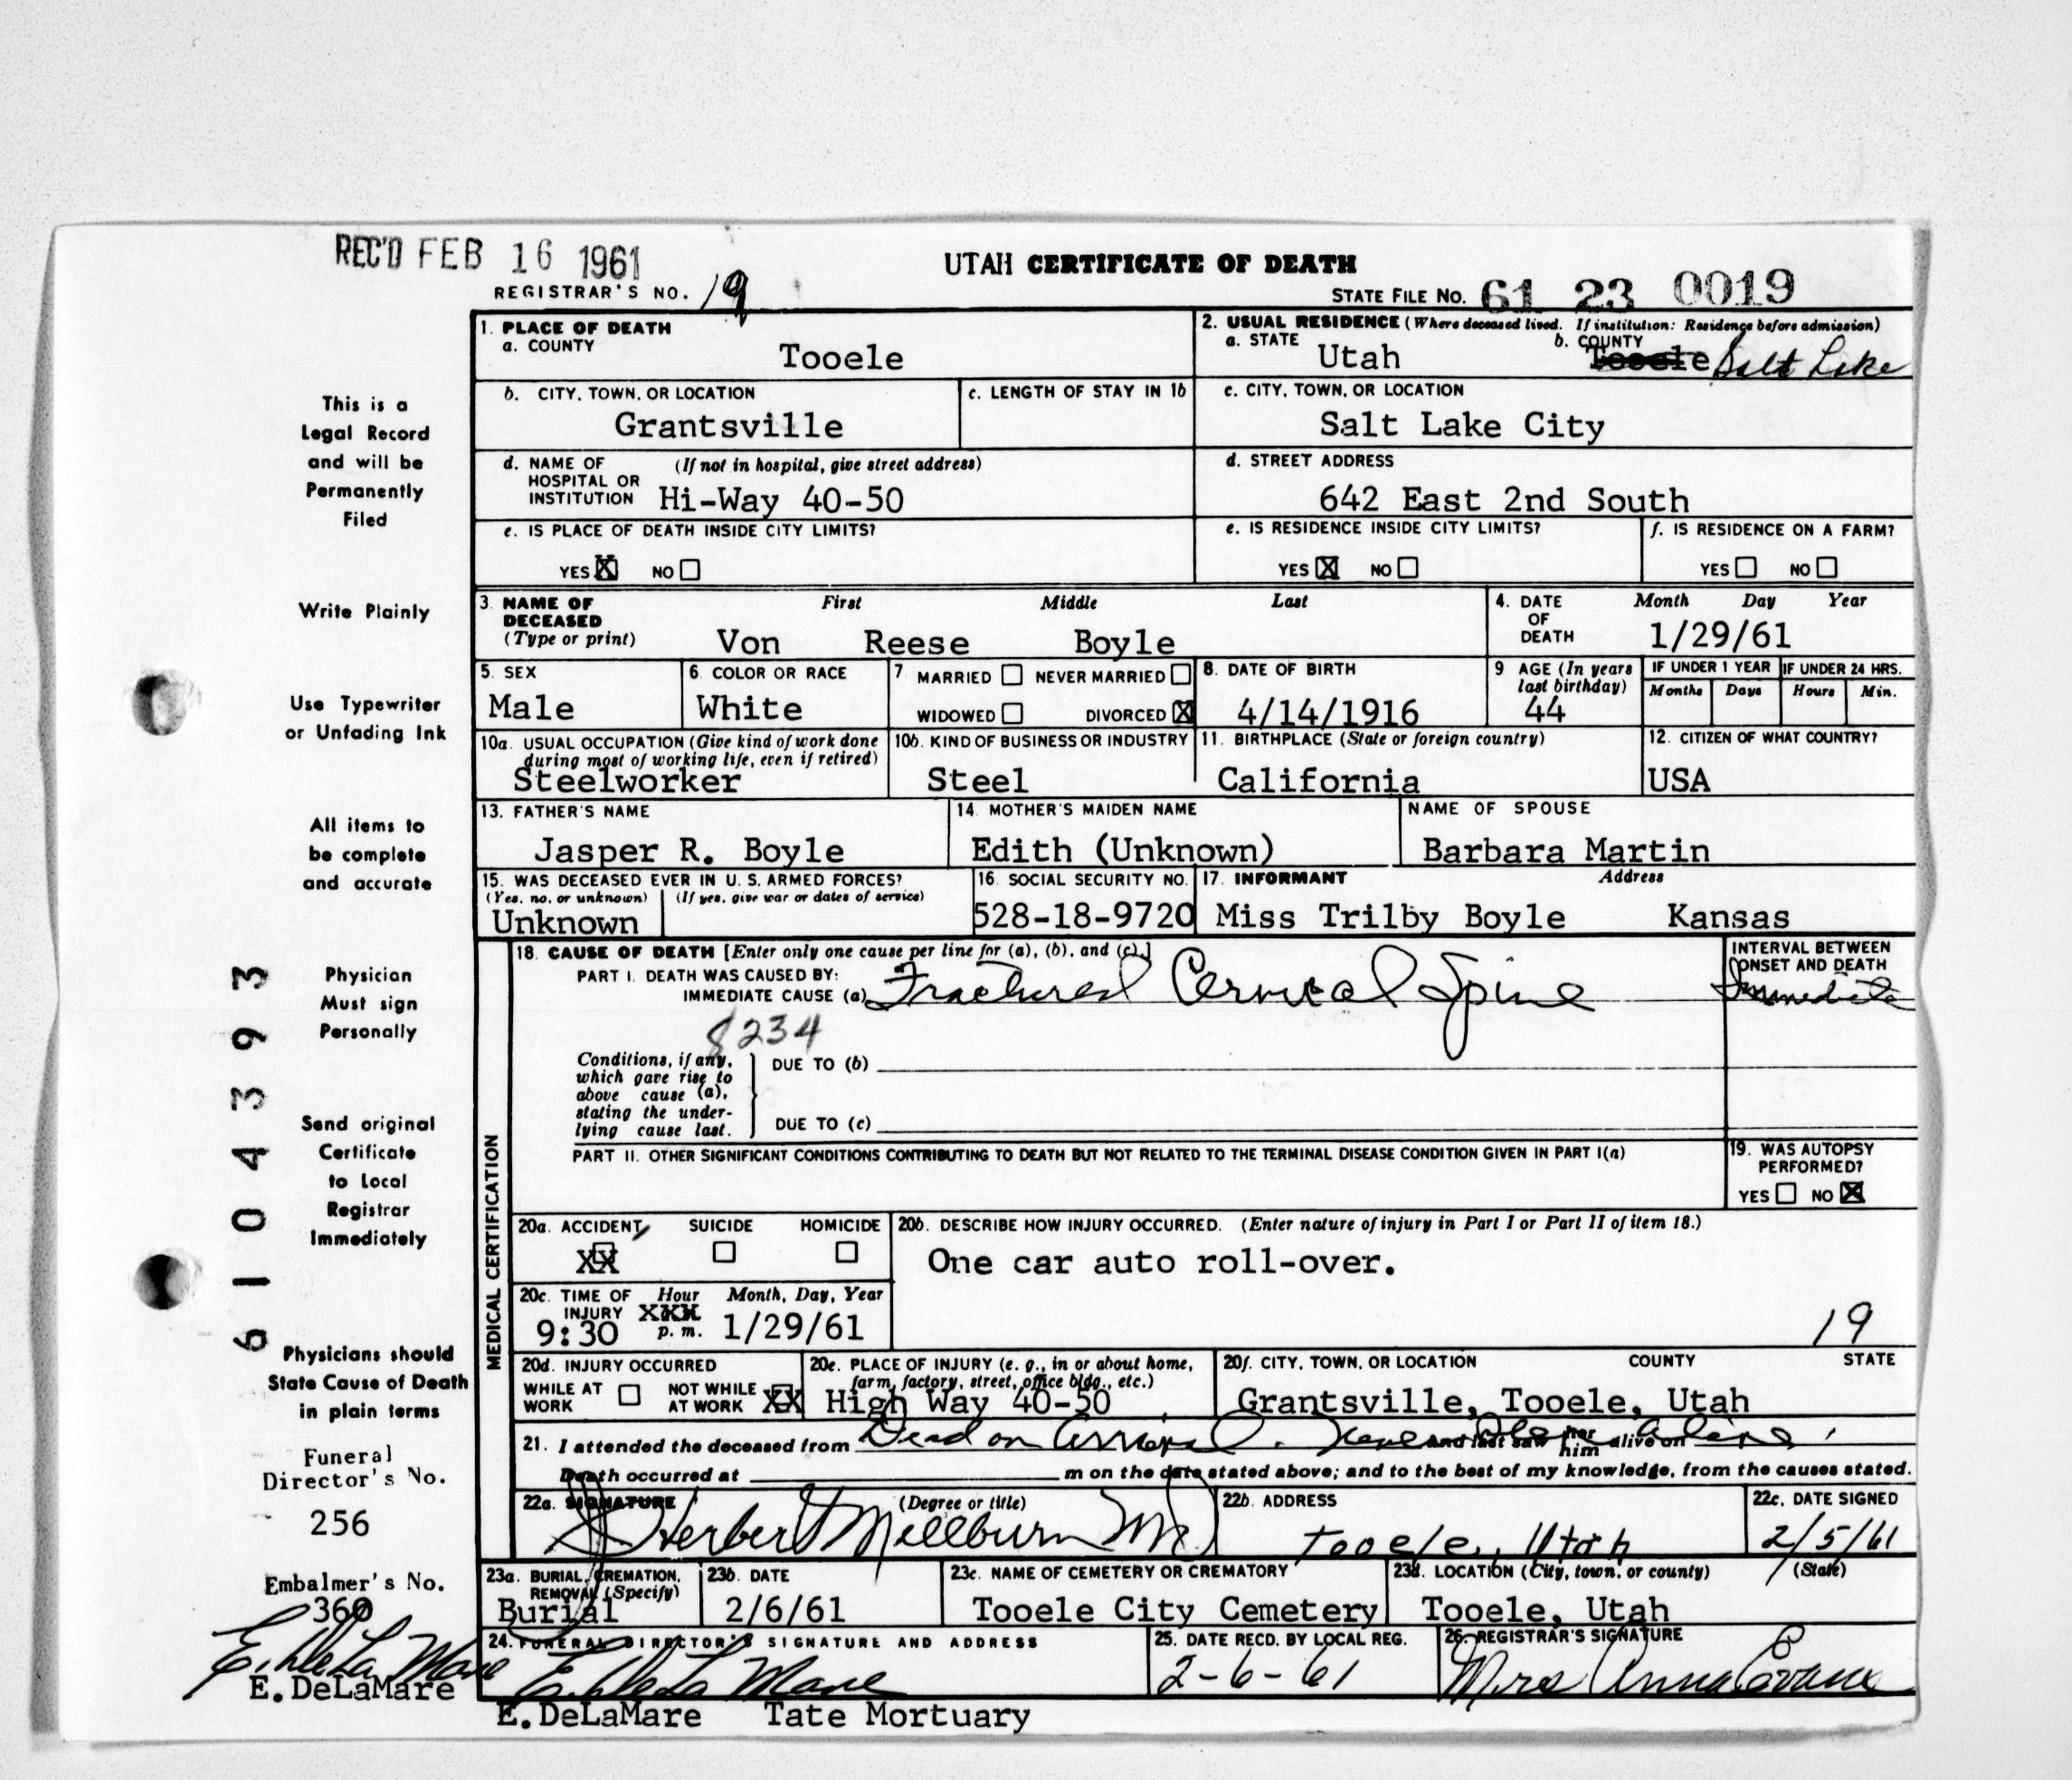 REC'D FEB 16 1961
UTAH CERTIFICATE OF DEATH
REGISTRAR'S NO. 19
STATE FILE NO. 61 23 0019
1. PLACE OF DEATH
a. COUNTY
Tooele
2. USUAL RESIDENCE (Where deceased lived. If institution: Residence before admission)
a. STATE
Utah
b. COUNTY
Tooele Salt Lake
b. CITY, TOWN, OR LOCATION
Grantsville
c. LENGTH OF STAY IN 1b
c. CITY, TOWN, OR LOCATION
Salt Lake City
d. NAME OF HOSPITAL OR INSTITUTION
(If not in hospital, give street address)
Hi-Way 40-50
d. STREET ADDRESS
642 East 2nd South
e. IS PLACE OF DEATH INSIDE CITY LIMITS?
YES X NO
e. IS RESIDENCE INSIDE CITY LIMITS?
YES X NO
f. IS RESIDENCE ON A FARM?
YES NO
3. NAME OF DECEASED
(Type or print)
First Middle Last
Von Reese Boyle
4. DATE OF DEATH
Month Day Year
1/29/61
5. SEX
Male
6. COLOR OR RACE
White
7. MARRIED NEVER MARRIED
WIDOWED DIVORCED X
8. DATE OF BIRTH
4/14/1916
9 AGE (In years last birthday)
44
IF UNDER 1 YEAR IF UNDER 24 HRS.
Months Days Hours Min.
10a. USUAL OCCUPATION (Give kind of work done during most of working life, even if retired)
Steelworker
10b. KIND OF BUSINESS OR INDUSTRY
Steel
11. BIRTHPLACE (State or foreign country)
California
12. CITIZEN OF WHAT COUNTRY?
USA
13. FATHER'S NAME
Jasper R. Boyle
14 MOTHER'S MAIDEN NAME
Edith (Unknown)
NAME OF SPOUSE
Barbara Martin
15. WAS DECEASED EVER IN U.S. ARMED FORCES?
(Yes, no, or unknown) (If yes, give war or dates of service)
Unknown
16. SOCIAL SECURITY NO.
528-18-9720
17. INFORMANT Address
Miss Trilby Boyle Kansas
MEDICAL CERTIFICATION
18. CAUSE OF DEATH [Enter only one cause per line for (a), (b), and (c).]
PART I. DEATH WAS CAUSED BY:
IMMEDIATE CAUSE (a) Fractured Cervical Spine
INTERVAL BETWEEN ONSET AND DEATH
Immediate
8234
Conditions, if any, which gave rise to above cause (a), stating the underlying cause last.
DUE TO (b)
DUE TO (c)
PART II. OTHER SIGNIFICANT CONDITIONS CONTRIBUTING TO DEATH BUT NOT RELATED TO THE TERMINAL DISEASE CONDITION GIVEN IN PART I(a)
19. WAS AUTOPSY PERFORMED?
YES NO X
20a. ACCIDENT SUICIDE HOMICIDE
XX
20b. DESCRIBE HOW INJURY OCCURRED. (Enter nature of injury in Part I or Part II of item 18.)
One car auto roll-over.
19
20c. TIME OF INJURY Hour Month, Day, Year
XXX
9:30 p. m. 1/29/61
20d. INJURY OCCURRED
WHILE AT WORK NOT WHILE AT WORK XX
20e. PLACE OF INJURY (e. g., in or about home, farm, factory, street, office bldg., etc.)
High Way 40-50
20f. CITY, TOWN, OR LOCATION COUNTY STATE
Grantsville, Tooele, Utah
21. I attended the deceased from Dead on arrival. and last saw her him alive on
Death occurred at m on the date stated above; and to the best of my knowledge, from the causes stated.
22a. SIGNATURE (Degree or title)
Herbert Millburn MD
22b. ADDRESS
Tooele, Utah
22c. DATE SIGNED
2/5/61
23a. BURIAL, CREMATION, REMOVAL (Specify)
Burial
23b. DATE
2/6/61
23c. NAME OF CEMETERY OR CREMATORY
Tooele City Cemetery
23d. LOCATION (City, town, or county) (State)
Tooele, Utah
24. FUNERAL DIRECTOR'S SIGNATURE AND ADDRESS
E. DeLaMare
E. DeLaMare Tate Mortuary
25. DATE RECD. BY LOCAL REG.
2-6-61
26. REGISTRAR'S SIGNATURE
Mrs Anna Evans
This is a
Legal Record
and will be
Permanently
Filed
Write Plainly
Use Typewriter
or Unfading Ink
All items to
be complete
and accurate
Physician
Must sign
Personally
Send original
Certificate
to Local
Registrar
Immediately
Physicians should
State Cause of Death
in plain terms
Funeral
Director's No.
256
Embalmer's No.
360
E. DeLaMare
E. DeLaMare
6104393